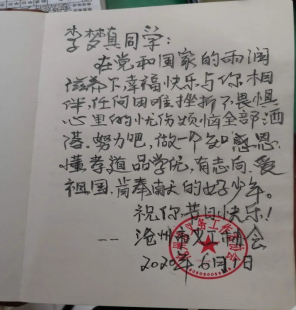 李梦真同学：
在党和国家的雨润
滋养下,幸福快乐与你相
伴,任何困难挫折不畏惧
心里的忧伤烦恼全部洒
落,努力吧,做一个知感恩
懂孝道品学优,有志向,爱
祖国,肯奉献的好少年。
祝你节日快乐!
-- 沧州市义工协会
2020年6月1日